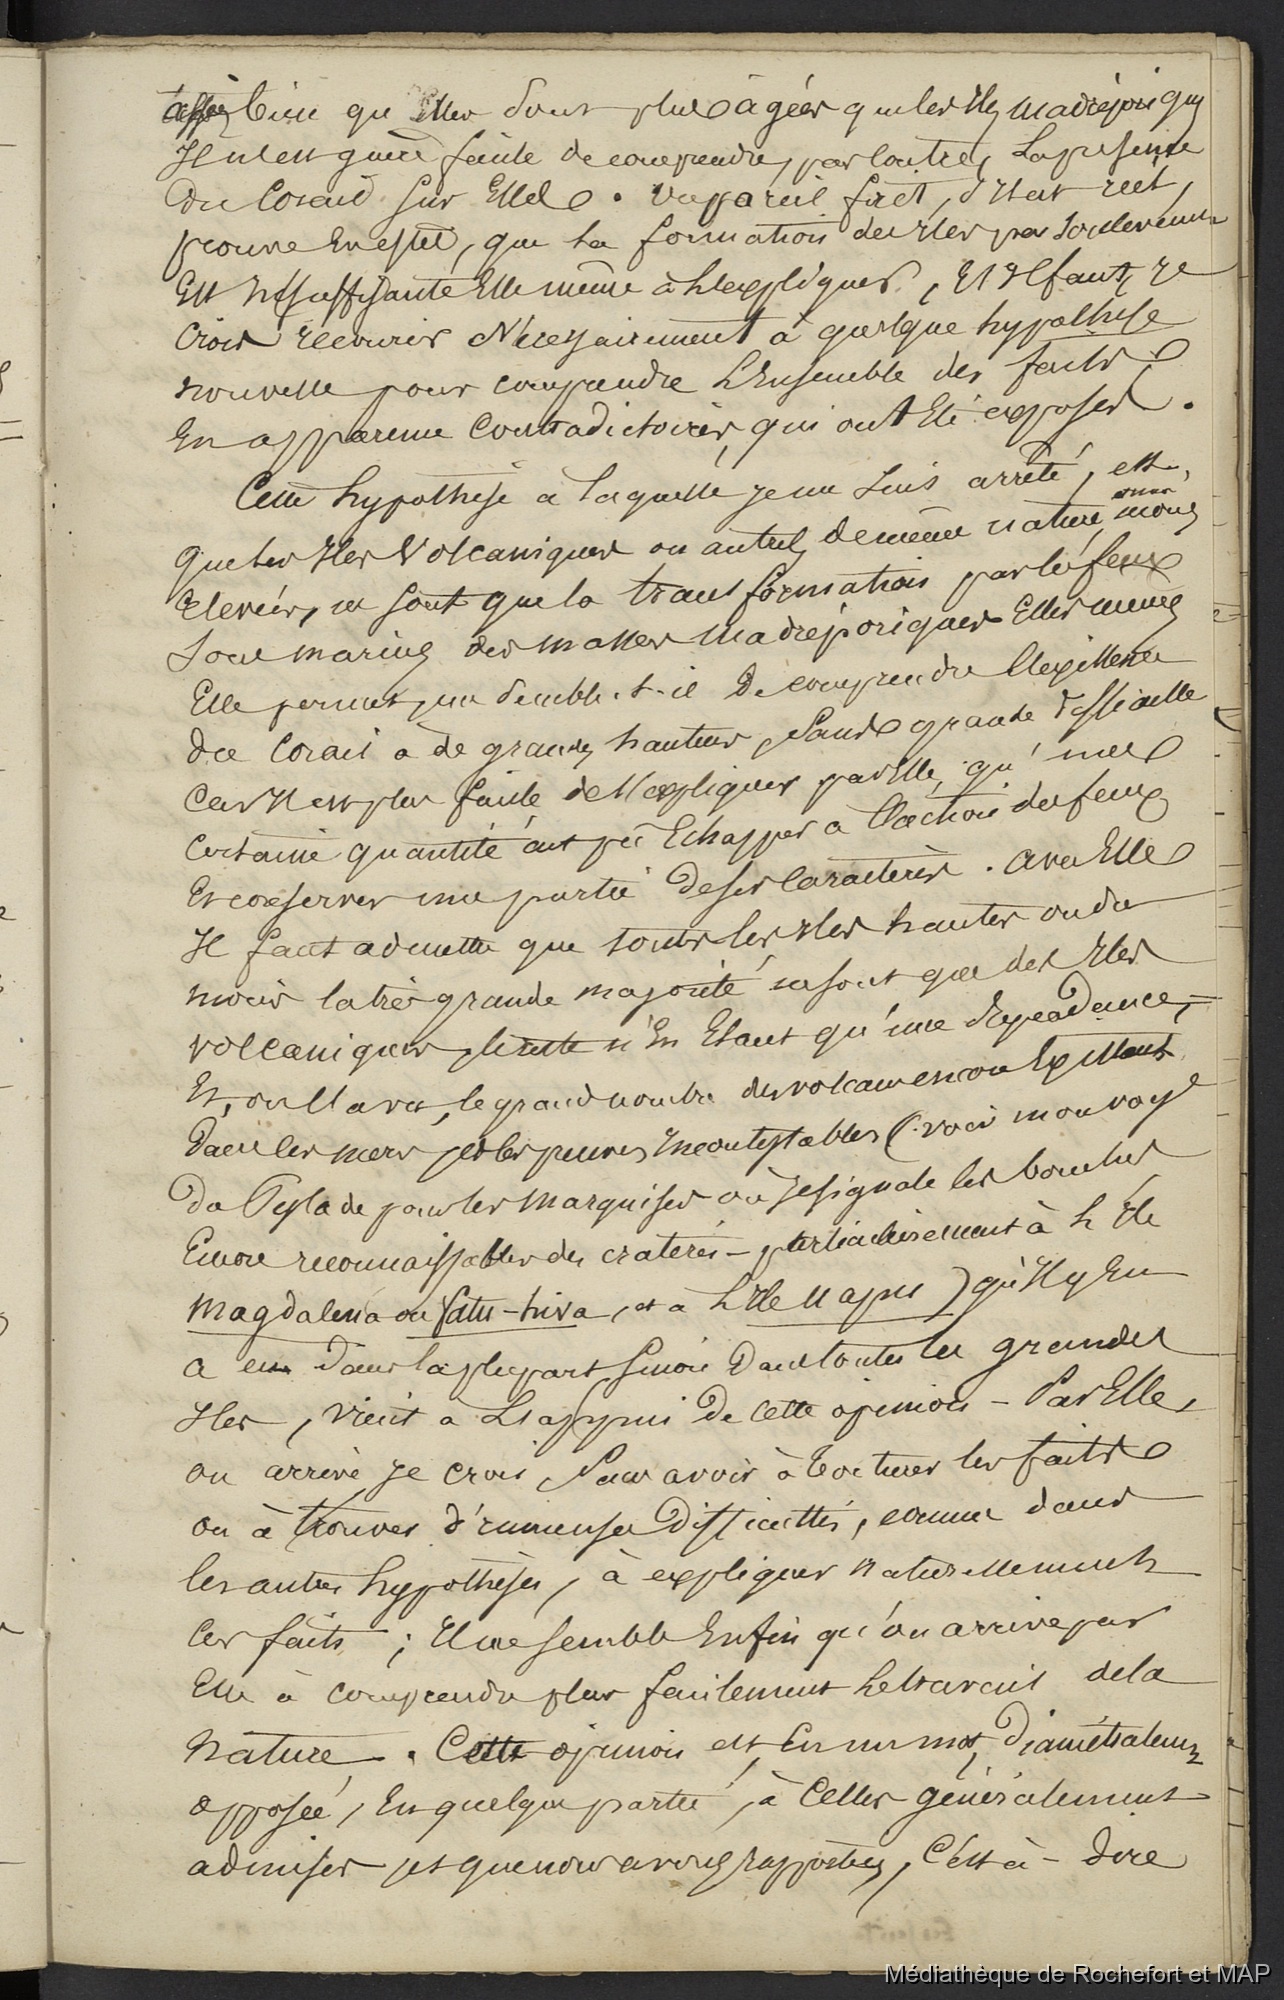 assez bien qu'elles sont plus âgées que les Iles madréporiques
Il n'est guère facile de comprendre, par contre, la présence
du Corail sur Elles. Un pareil fait, s'il est réel,
prouve En effet, que la formation des Iles par soulèvement
Est Insuffisante Elle même à l'expliquer, Et Il faut, Je
crois recourir Nécessairement à quelque hypothèse
nouvelle pour comprendre L'Ensemble des faits
En apparence Contradictoires, qui ont Eté exposés.
Cette hypothèse à laquelle je me suis arrêté, est
que les Iles Volcaniques ou autres, de même nature,
Elevées, ne sont que la transformation par les feux
sous marins des masses Madréporiques Elles mêmes
Elle permet, me semble-t-il De comprendre l'existence
du Corail à de grandes hauteurs, Sans grande difficulté
Car Il est plus facile de s'expliquer par Elle, qu'une
Certaine quantité ait pu Echapper à l'action des feux
Et conserver une partie de ses Caractères. Avec Elle
Il faut admettre que toutes les Iles hautes ou du
moins la très grande majorité ne sont que des Iles
volcaniques, le reste n'En Etant qu'une dépendance,
Et, on l'a vu, le grand nombre des volcans encore Existant
Dans les mers, et les preuves Incontestables (voir mon voyge
Du Pylade pour les Marquises où Je signale les bouches
Encore reconnaissables des cratères – particulièrement à L'Ile
Magdalena ou fatu-hiva, et à L'Ile Uapou) qu'Il y En
a eu Dans la plupart Sinon Dans toutes les grandes
Iles, vient à L'appui De Cette opinion – Par Elle,
on arrive Je crois, Sans avoir à torturer les faits
ou à trouver d'immenses Difficultés, comme dans
les autres hypothèses, à expliquer Naturellement
Ces faits ; Il me semble Enfin qu'on arrive par
Elle à comprendre plus facilement Le travail de la
Nature. Cette opinion est, En un mot, Diamétralemt
opposée, En quelque partie, à Celles généralement
admises, et que nous avons rapportées, C'est à – dire
Médiathèque de Rochefort et MAP